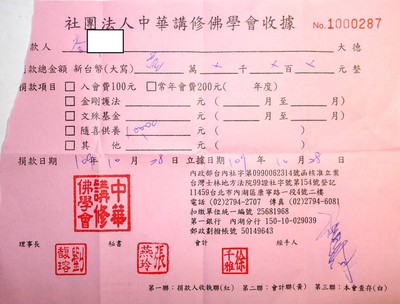 社團法人中華講修佛學會收據 No.1000287
捐款人 李 大德
捐款總金額 新台幣(大寫) 萬 × 千 × 百 × 元整
捐款項目 □入會費100元 □常年會費200元( 年度)
□金剛護法 元( 月至 月)
□文殊基金 元( 月至 月)
□隨喜供養 10000 元
□其 他 元
捐款日期 109年10月28日 立據日期109年10月28日
內政部台內社字第0990062314號函核准立案
台灣士林地方法院99證社字第154號登記
11459台北市內湖區康寧路一段4號二樓
電話 (02)2794-2707 傳真 (02)2794-6081
扣繳單位統一編號 25681968
第一銀行 內湖分行 150-10-029039
郵政劃撥帳號 50149643
中華講修佛學會
理事長 秘書 會計 經手人
劉馥瑢 張燕玲 徐千雅
第一聯:捐款人收執聯(紅) 第二聯:會計聯(黃) 第三聯:本會查存(白)